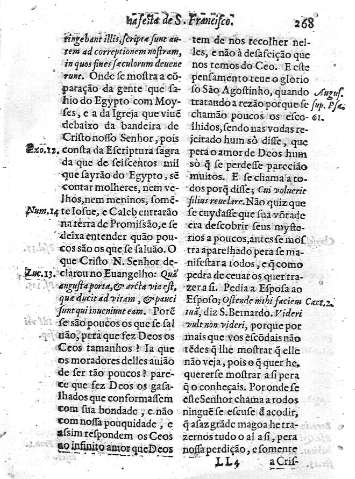 na festa de S. Francisco. 268
tingebant illis, scriptæ sunt au-
tem ad correptionem nostram,
in quos fines sæculorum deuene
runt. Onde se mostra a cõ-
paração da gente que sa-
hio do Egypto com Moy-
ses, e a da Igreja que viuẽ
debaixo da bandeira de
Cristo nosso Senhor, pois
Exo. 12. consta da Escriptura sagra
da que de seiscentos mil
que sayrão do Egypto, sẽ
contar molheres, nem ve-
lhos, nem meninos, somẽ-
Num. 14 te Iosue, e Caleb entrarão
na terra de Promissão, e se
deixa entender quão pou-
cos são os que se saluão. O
que Cristo N. Senhor de-
Luc. 13. clarou no Euangelho: Quã
angusta porta, & arcta via est,
quæ ducit ad vitam, & pauci
sunt qui inueniunt eam. Porẽ
se são poucos os que se sal
não, pera que fez Deos os
Ceos tamanhos? Ia que
os moradores delles auião
de ser tão poucos? pare-
ce que fez Deos os gasa-
lhados que conformassem
com sua bondade, e não
com nossa pouquidade, e
assim respondem os Ceos
ao infinito amor que Deos
tem de nos recolher nel-
les, e não à desafeição que
nos temos do Ceo. E este
pensamento teue o glorio
so São Agostinho, quando August.
tratando a rezão porque se sup. Psa.
chamão poucos os esco- 61.
lhidos, sendo nas vodas re-
jeitado hum só disse, que
pera o amor de Deos hum
só q̃ se perdesse parecião
muitos. E se chama a to-
dos porq̃ disse; Cui voluerit
filius reuelare. Não quiz que
se cuydasse que sua võtade
era descobrir seus myste-
rios a poucos, antes se mos
tra aparelhado pera se ma-
nifestar a todos, e q̃ como
pedra de ceuar os quer tra-
zer a si. Pedia a Esposa ao
Esposo; Ostende mihi faciem Cant. 2.
tuã, diz S. Bernardo. Videri
vult non videri, porque por
mais que vos escõdais não
tẽdes q̃ lhe mostrar q̃ elle
não veja, pois o q̃ quer he,
quererse mostrar a si pera
q̃ o conheçais. Por onde se
este Senhor chama a rodos
ninguẽ se escuse d'acodir,
q̃ asaz grãde magoa he tra-
zernos tudo o al a si, pera
nossa perdição, e somente
LL4 a Cris-